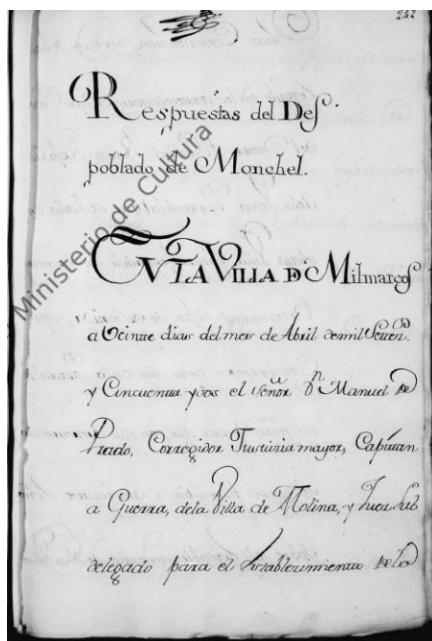 262
Respuestas del Des
poblado de Monchel.
EN LA VILLA DE Milmarcos
a Veinte dias del mes de Abril de mil Seten.os
y Cincuenta y dos el señor Dn. Manuel de
Prado, Corregidor Justizia mayor, Capitan
a Guerra, de la Villa de Molina, y Juez sub
delegado para el establezimiento de la
Ministerio de Cultura